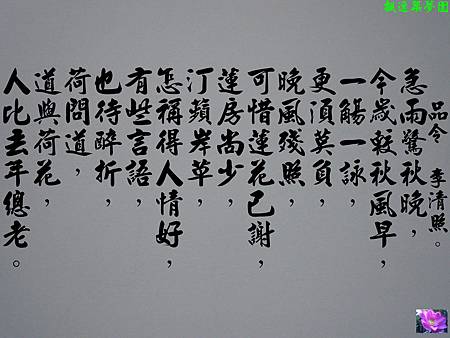 飄逸築夢園
品令 李清照。
急雨驚秋晚,
今歲較秋風早,
一觴一詠,
更須莫負,
晚風殘照,
可惜蓮花已謝,
蓮房尚少,
汀蘋岸草,
怎稱得人情好,
有些言語,
也待醉折,
荷問道,
道與荷花,
人比去年總老。